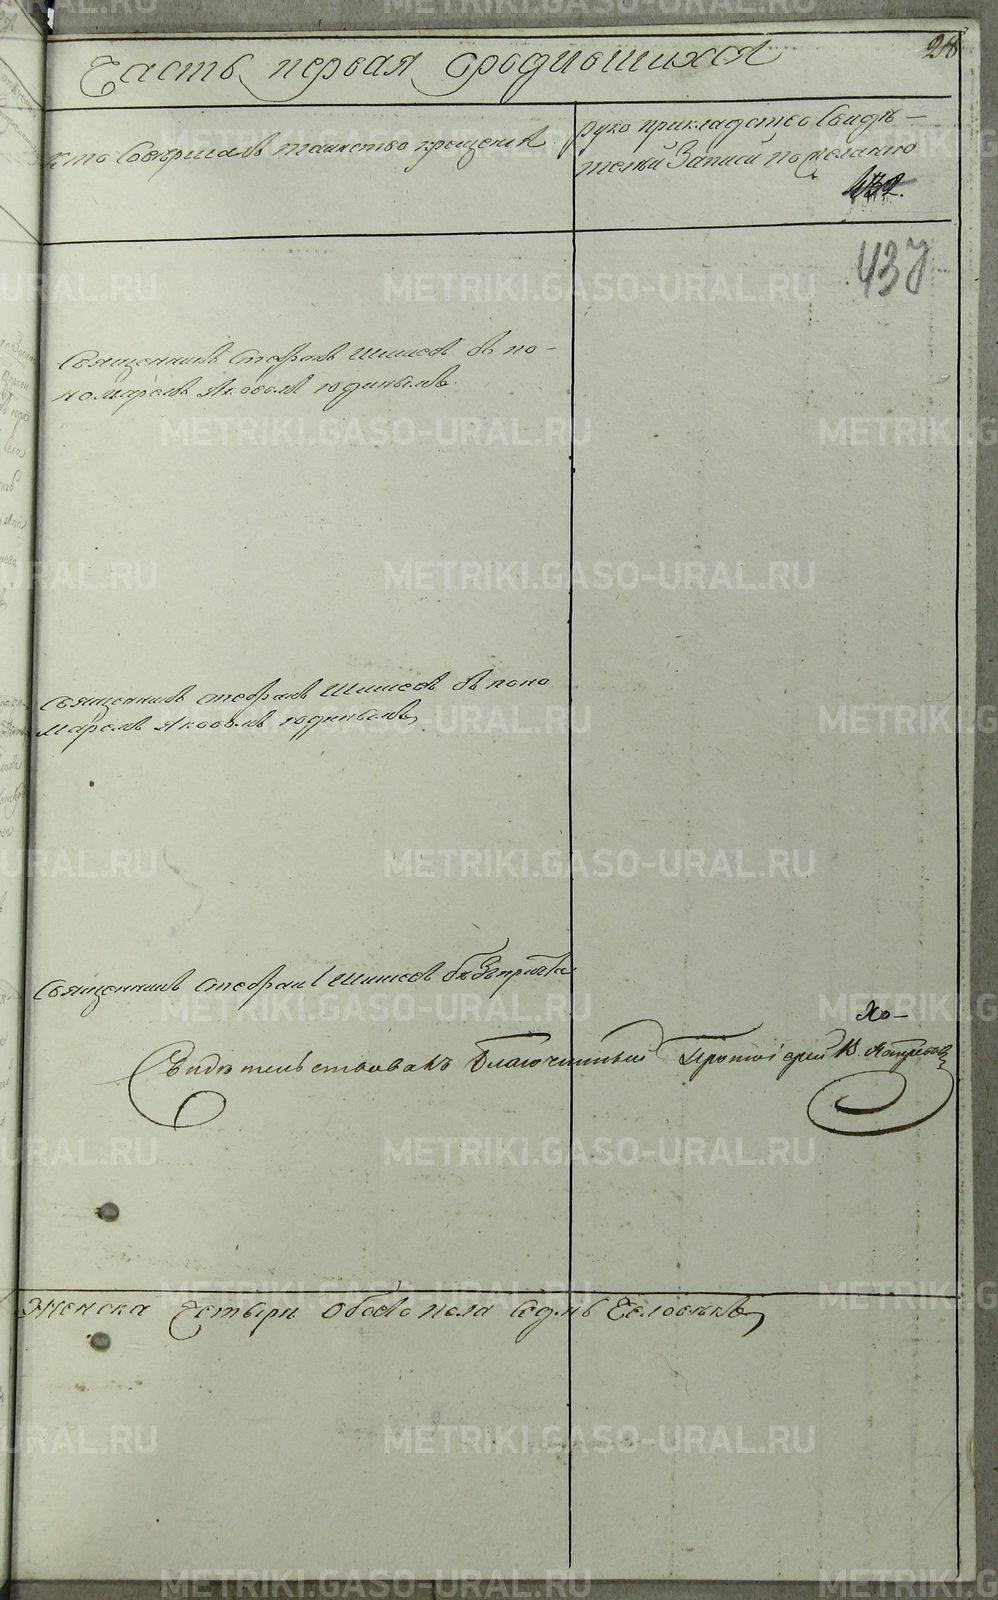 Часть первая ородившихся
218
Кто Совершалъ таинство крещенiя
Руко прикладство Свидѣ-
телей Записи по желанiю
432.
437
Священникъ Стефанъ Шишевъ съ по-
номаремъ Яковомъ Юдинымъ
Священникъ Стефанъ Шишевъ съ поно
маремъ Яковомъ Юдинымъ
Священникъ Стефанъ Шишевъ безъ причта
Яо-
Свидѣтельствовалъ Благочинный Протоiерей В. Ястребовъ
Женска Честыри обоего пола Седмь Человѣкъ
METRIKI.GASO-URAL.RU